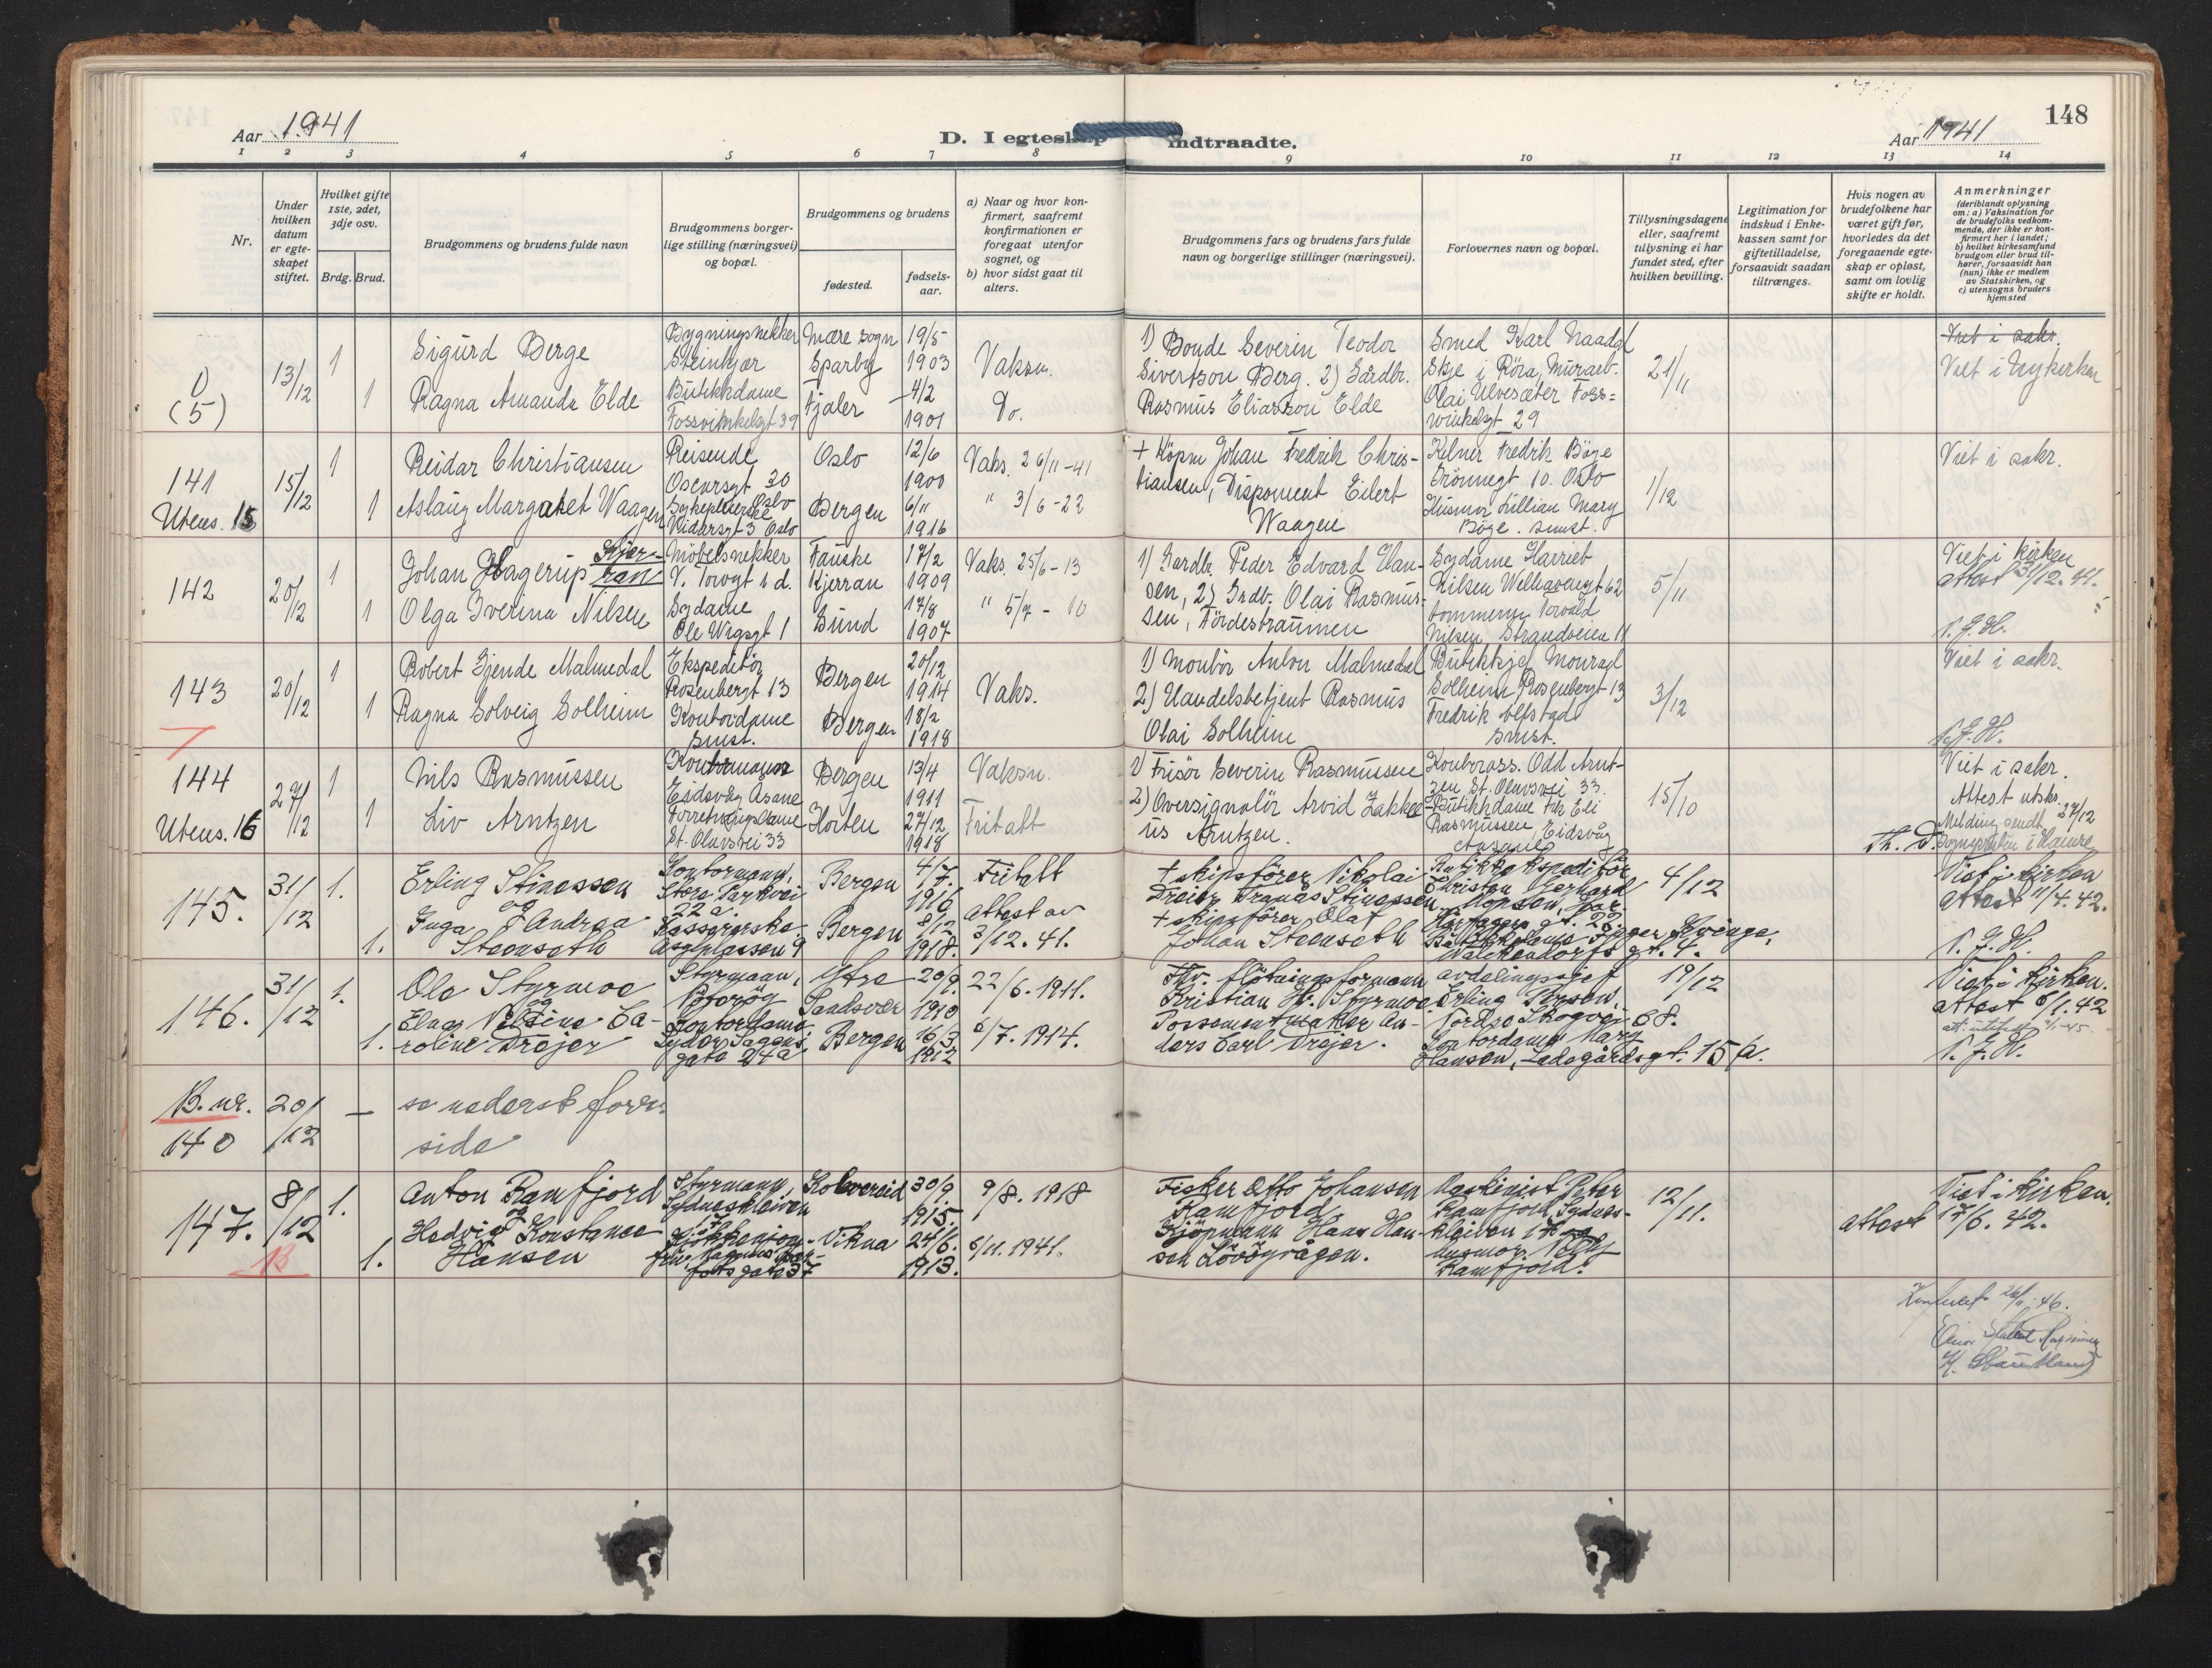 148
Aar 1941
D. I egteskap indtraadte.
Aar 1941
1 2 3 4 5 6 7 8 9 10 11 12 13 14
Nr.
Under hvilken datum er egteskapet stiftet.
Hvilket gifte 1ste, 2det, 3dje osv.
Brdg. Brud.
Brudgommens og brudens fulde navn
Brudgommens borgerlige stilling (næringsvei) og bopæl.
Brudgommens og brudens
fødested.
fødselsaar.
a) Naar og hvor konfirmert, saafremt konfirmationen er foregaat utenfor sognet, og
b) hvor sidst gaat til alters.
Brudgommens fars og brudens fars fulde navn og borgerlige stillinger (næringsvei).
Forlovernes navn og bopæl.
Tillysningsdagene eller, saafremt tillysning ei har fundet sted, efter hvilken bevilling.
Legitimation for indskud i Enkekassen samt for giftetilladelse, forsaavidt saadan tiltrænges.
Hvis nogen av brudefolkene har været gift før, hvorledes da det foregaaende egteskap er opløst, samt om lovlig skifte er holdt.
Anmerkninger (deriblandt oplysning om: a) Vaksination for de brudefolks vedkommende, der ikke er konfirmert her i landet; b) hvilket kirkesamfund brudgom eller brud tilhører, forsaavidt han (hun) ikke er medlem av Statskirken, og c) utensogns bruders hjemsted
(5)
13/12
1
1
Sigurd Berge
Ragna Amanda Elde
Bygningsnekker
Steinkjær
Butikkdame
Fossvinkelsgt 39
Mære sogn
Sparby
Fjaler
19/5
1903
4/2
1901
Vaksn.
Do.
1) Bonde Severin Teodor
Sivertson Berg. 2) Gårdbr.
Rasmus Eliasson Elde
Smed Karl Naadal
Skje i Röra, Murarb.
Olai Ulvesæter Foss=
vinkelsgt 29
21/11
Viet i sakr.
Viet i Nykirken
141
Utens. 15
15/12
1
1
Reidar Christiansen
Aslaug Margaret Waagen
Reisende
Oscarsgt 30
Oslo
Sykepleierske
Vidarsgt 3 Oslo
Oslo
Bergen
12/6
1900
6/11
1916
Vaks. 26/11-41
" 3/6-22
+ Köpm Johan Fredrik Chris-
tiansen, Disponent Eilert
Waagen
Kelner Fredrik Böge
Grönnegt 10. Oslo
Husmor Lillian Mary
Böge. smst.
1/12
Viet i sakr.
142
20/12
1
1
Johan Hagerup Kjer-
ran
Olga Iverina Nilsen
Möbelsnekker
V. Torvgt 1 d.
Sydame
Ole Vigsgt 1
Fauske
Kjerran
Sund
17/2
1909
17/8
1907
Vaks. 25/6-13
" 5/7-10
1) Gardbr. Peder Edvard Han-
sen, 2) Grdb. Olai Rasmus-
sen, Fördestraumen
Sydame Harriet
Nilsen Welhavensgt 62
Torvald
Nilsen, Strandveien 11
5/11
Viet i kirken
Attest 31/12.41.
P.J.H.
143
20/12
1
1
Robert Gjende Malmedal
Ragna Solveig Solheim
Ekspeditör
Rosenbergt 13
Kontordame
smst.
Bergen
Bergen
20/12
1914
18/2
1918
Vaks.
1) Montör Anton Malmedal
2) Handelsbetjent Rasmus
Olai Solheim
Butikkbestyr. Monrad
Solheim Rosenbergt 13
Fredrik Alfstad
smst.
3/12
Viet i sakr.
P.J.H.
144
Utens. 16
27/12
1
1
Nils Rasmussen
Liv Arntzen
Kontormann
Eidsvåg Åsane
Forretningsdame
St. Olavsvei 33
Bergen
Horten
13/4
1911
27/12
1918
Vaksn.
Fritatt
1) Frisör Severin Rasmussen
2) Oversignalör Arvid Zakke-
us Arntzen.
Kontorass. Odd Arnt-
zen St. Olavsvei 33.
Butikkdame frk Eli
Rasmussen, Eidsvåg
Aasane
15/10
Viet i sakr.
Attest utskr.
Melding sendt 27/12
Sognepresten i Hamre
Th. D.
145.
31/12
1.
1.
Erling Stinessen
og
Inga Andrea
Steenseth
Kontormann,
Store Parkvei
22 a.
Kassererske
Asylplassen 9
Bergen
Bergen
4/7.
1916
8/12
1918.
Fritatt
Attest av
3/12.41.
+ skipsförer Nikolai
Dreier Tranås Stinessen
+ skipsförer Olaf
Johan Steenseth
Butikkekspeditör
Kristen Gerhard
Monsen, Har.
Hårfagres gt. 22.
Butikkdame Jigger Kvinge,
Walckendorfs gt. 4.
4/12
Viet i kirken
Attest 11/4.42.
P.J.H.
146.
31/12
1.
1.
Ole Styrmoe
og
Elna Nelsine Ca-
roline Dreyer
Styrmann,
Nöteröy
Kontordame.
Lyder Sagens
gate 24a
Ytre
Sandsvær
Bergen
20/9.
1910
16/3
1912
22/6.1911.
6/7.1914.
Fhv. flötningsformann
Kristian H. Styrmoe
Possementmaker An-
ders Carl Dreyer.
Avdelingssjef
Erling Persen,
Nordre Skogvei 68.
Kontordame Mary
Hansen, Ladegårdsgt. 15 A.
19/12
Viet i kirken.
Attest 6/1.42
P.J.H.
B. nr.
140
20/12
—
se nederst forr.
side
147.
B
8/12
1.
1.
Anton Ramfjord
og
Hedvig Konstance
Hansen
Styrmann,
Sydneskleiven
17
Kjökkenjom-
fru, Magnus Bar-
fots gate 37
Kolvereid
Vikna
30/9.
1915.
24/6.
1913.
9/8.1918
6/11.1941.
Fisker Otto Johansen
Ramfjord
Kjöpmann Hans Han-
sen Lövöyvågen.
Maskinist Peter
Ramfjord, Sydnes-
kleiven 17 og
Husmor Nelly
Ramfjord.
12/11.
Viet i kirken.
Attest 17/6.42.
Konferert 26/11-46.